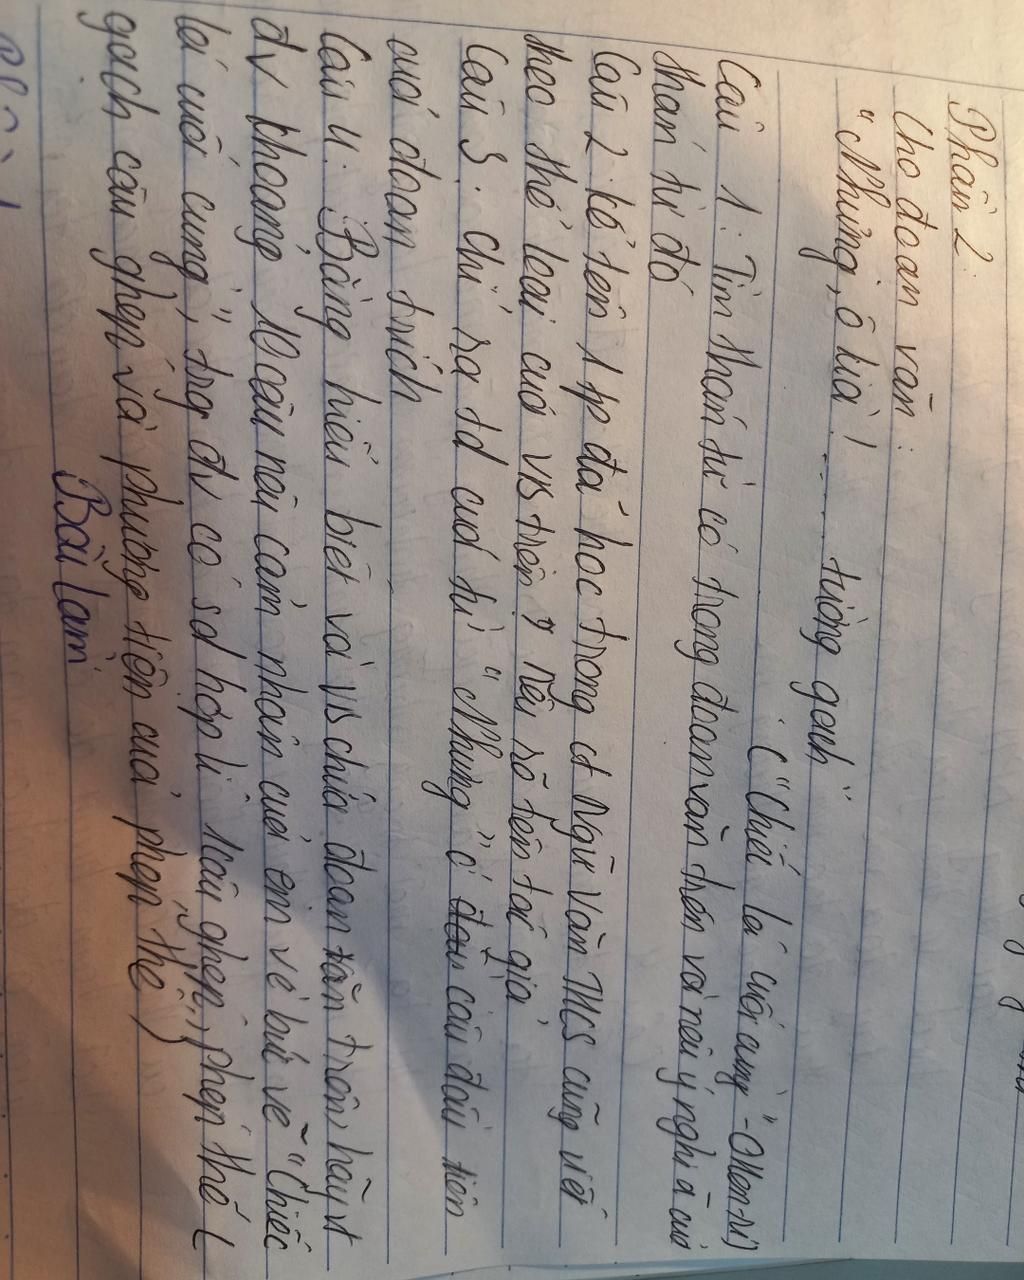 Phần 2:
Cho đoạn văn:
"Nhưng, ô kìa! ..... tường gạch"
("Chiếc lá cuối cùng" - OHen-ri)
Câu 1: Tìm thán từ có trong đoạn văn trên và nêu ý nghĩa của
thán từ đó
Câu 2: kể tên 1 tp đã học trong ct Ngữ Văn THCS cũng viết
theo thể loại của vb trên? nêu rõ tên tác giả
Câu 3: chỉ ra td của từ "Nhưng" ở câu đầu tiên
của đoạn trích
Câu 4: Bằng hiểu biết về vb chứa đoạn văn trên, hãy vt
đv khoảng 10 câu nêu cảm nhận của em về bức vẽ "Chiếc
lá cuối cùng", trg đv có sd hợp lí 1 câu ghép, phép thế (
gạch câu ghép và phương tiện của phép thế)
Bài làm